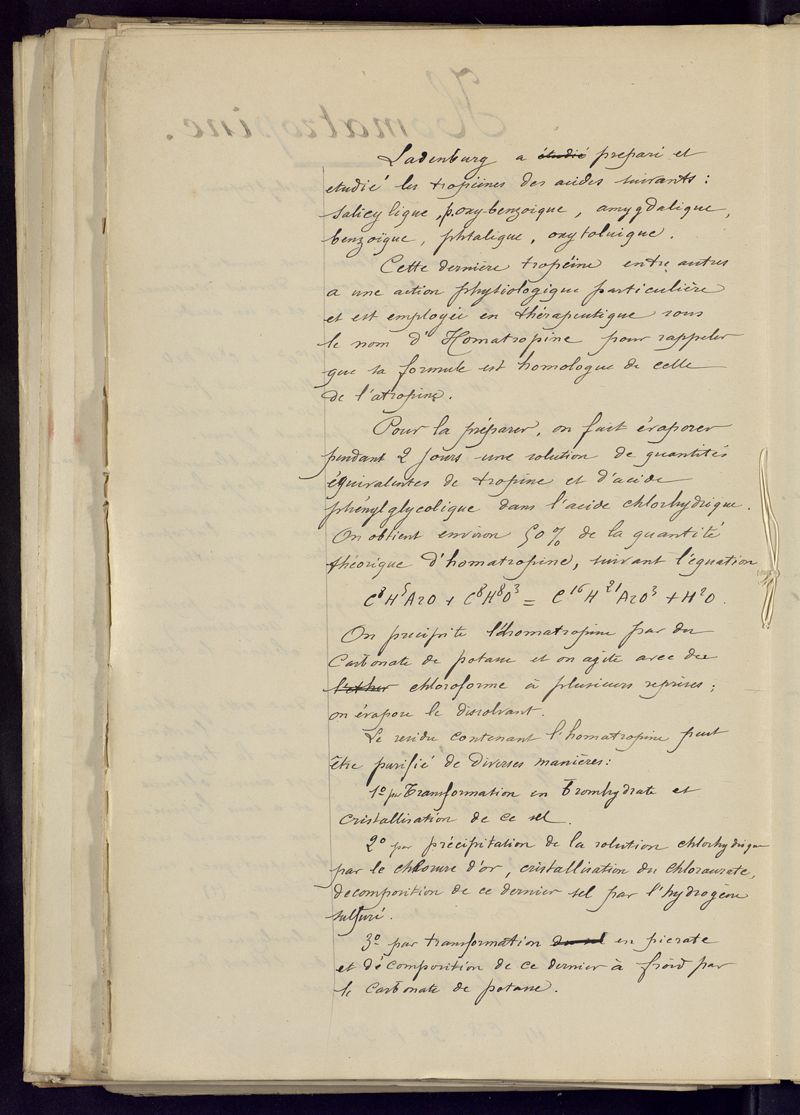 Ladenburg a étudié preparé et
etudié les tropéines des acides suivants :
Salicylique, p.oxybenzoique, amygdalique,
benzoïque, phtalique, oxytoluique.
Cette dernière tropéine entre autres
a une action physiologique particulière
et est employée en thérapeutique sous
le nom d'Homatropine pour rappeler
que sa formule est homologue de celle
de l'atropine.
Pour la préparer, on fait évaporer
pendant 2 jours une solution de quantités
équivalentes de tropine et d'acide
phénylglycolique dans l'acide chlorhydrique.
On obtient environ 50% de la quantité
théorique d'homatropine, suivant l'équation
C⁸H⁵AzO + C⁸H⁸O³ = C¹⁶H²¹AzO³ + H²O.
On précipite l'homatropine par du
Carbonate de potasse et on agite avec du
l'ether chloroforme à plusieurs reprises ;
on évapore le dissolvant.
Le residu contenant l'homatropine peut
être purifié de diverses manières :
1º par Transformation en Bromhydrate et
cristallisation de ce sel.
2º par précipitation de la solution chlorhydrique
par le chlorure d'or, cristallisation du chloraurate,
decomposition de ce dernier sel par l'hydrogène
sulfuré.
3º par transformation du sel en picrate
et décomposition de ce dernier à froid par
le Carbonate de potasse.